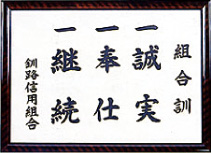 組合訓
一誠実
一奉仕
一継続
釧路信用組合